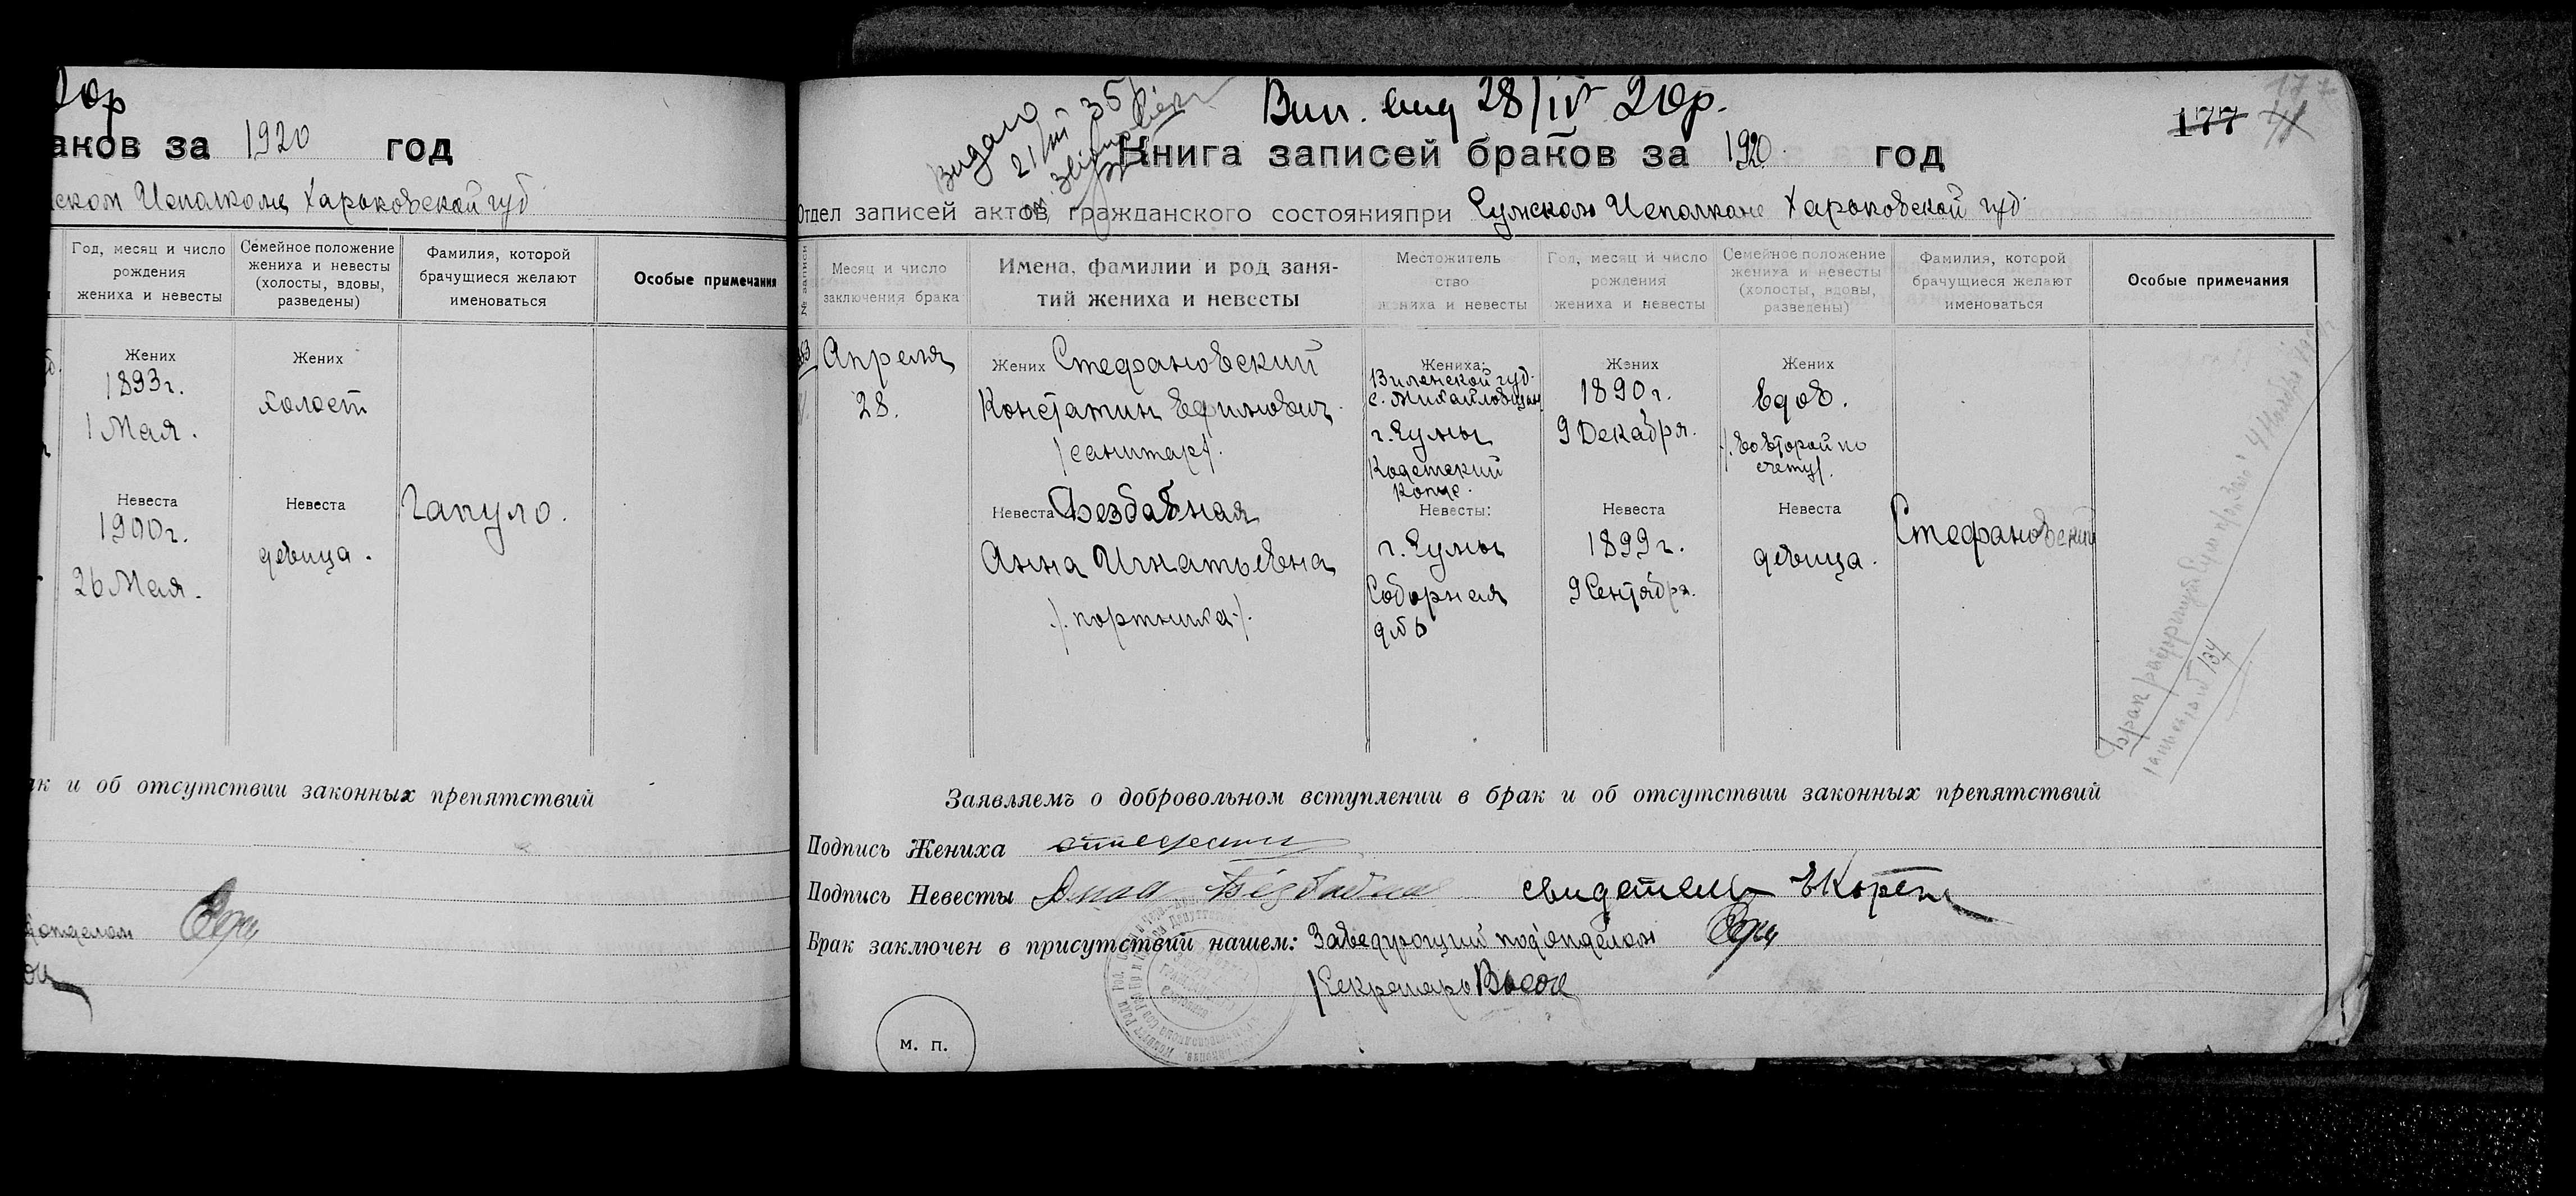 аков за 1920 год
ском Исполкоме Харьковской губ
Год, месяц и число рождения жениха и невесты
Семейное положение жениха и невесты (холосты, вдовы, разведены)
Фамилия, которой брачущиеся желают именоваться
Особые примечания
Жених
1893 г.
1 Мая.
Жених
холост
Невеста
1900 г.
26 Мая.
Невеста
девица.
Гапуло.
ак и об отсутствии законных препятствий
Вип. вид 28/IV 20р.
Видано
21/III 35
177
Книга записей браков за 1920 год
Отдел записей актов гражданского состояния при Сумском Исполкоме Харьковской губ.
№ записи
Месяц и число заключения брака
Имена, фамилии и род занятий жениха и невесты
Местожительство жениха и невесты
Год, месяц и число рождения жениха и невесты
Семейное положение жениха и невесты (холосты, вдовы, разведены)
Фамилия, которой брачущиеся желают именоваться
Особые примечания
Апреля
28.
Жених Стефановский
Констатин Ефимович
/санитар/.
Жениха:
Виленской губ.
г. Сумы
Кадетский
Корпус.
Жених
1890 г.
9 Декабря.
Жених
Вдов.
/. во второй по
счету/.
Невеста Бездабная
Анна Игнатьевна
/. портниха ./.
Невесты:
г. Сумы
Соборная
д № 6
Невеста
1899 г.
9 Сентября.
Невеста
девица.
Стефановский
Брак
134
Заявляемъ о добровольном вступлении в брак и об отсутствии законных препятствий
Подпись Жениха
Подпись Невесты Анна Бездабная свидетель
Брак заключен в присутствии нашем: Заведующий подотделом
/Секретарь
м. п.